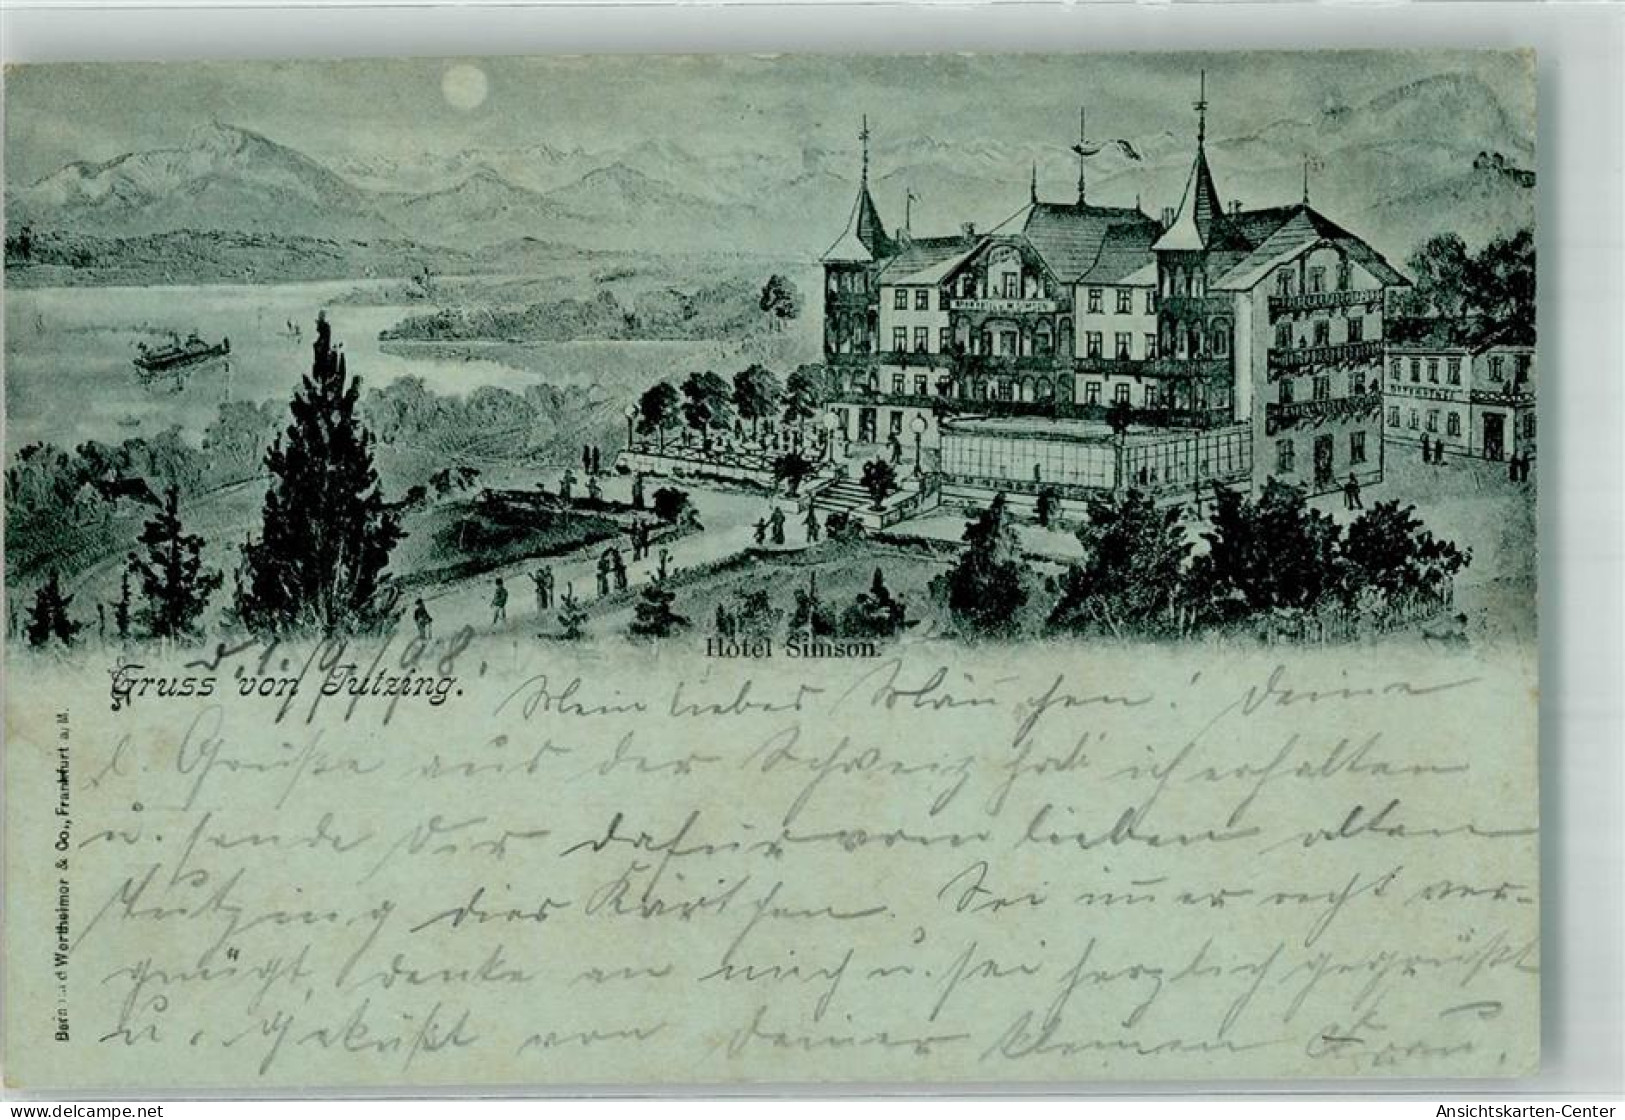 HOTEL SIMSON
Hôtel Simson.
d. 1./9./98.
Gruss von Tutzing.
Mein liebes Mäuschen! Deine
l. Grüße aus der Schweiz hab ich erhalten
u. sende Dir dafür vom lieben alten
Tutzing dies Kärtchen. Sei immer recht ver-
gnügt, denke an mich u. sei herzlich gegrüßt
u. geküßt von Deiner kleinen Frau.
Bernhard Wertheimer & Co., Frankfurt a. M.
Ansichtskarten-Center
www.delcampe.net